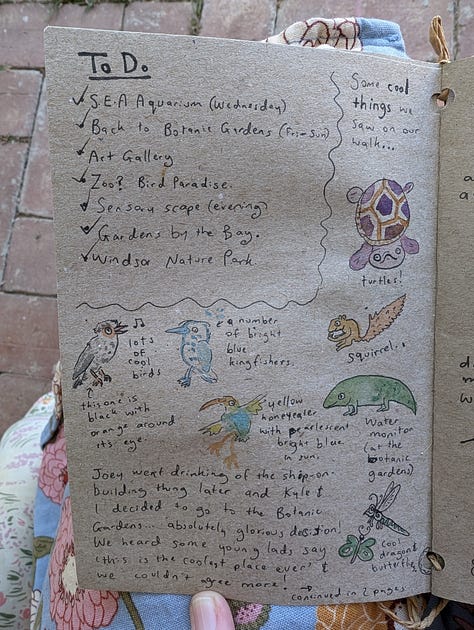 To Do
S.E.A Aquarium (Wednesday)
Back to Botanic Gardens (Fri-Sun)
Art Gallery
Zoo? Bird Paradise.
Sensory scape (evening)
Gardens by the Bay.
Windsor Nature Park.
Some cool
things we
saw on our
walk...
turtles!
squirrel..
lots
of
cool
birds
this one is
black with
orange around
its eye.
a number
of bright
blue
kingfishers.
yellow
honeyeater
with pearlescent
bright blue
in sun.
Water
monitor
(at the
botanic
gardens)
Joey went drinking of the ship-on-
building thing later and Kale &
I decided to go to the Botanic
Gardens... absolutely glorious decision!
We heard some young lads say
'this is the coolest place ever' &
we couldn't agree more!
cool
dragon &
butterflies
continued in 2 pages